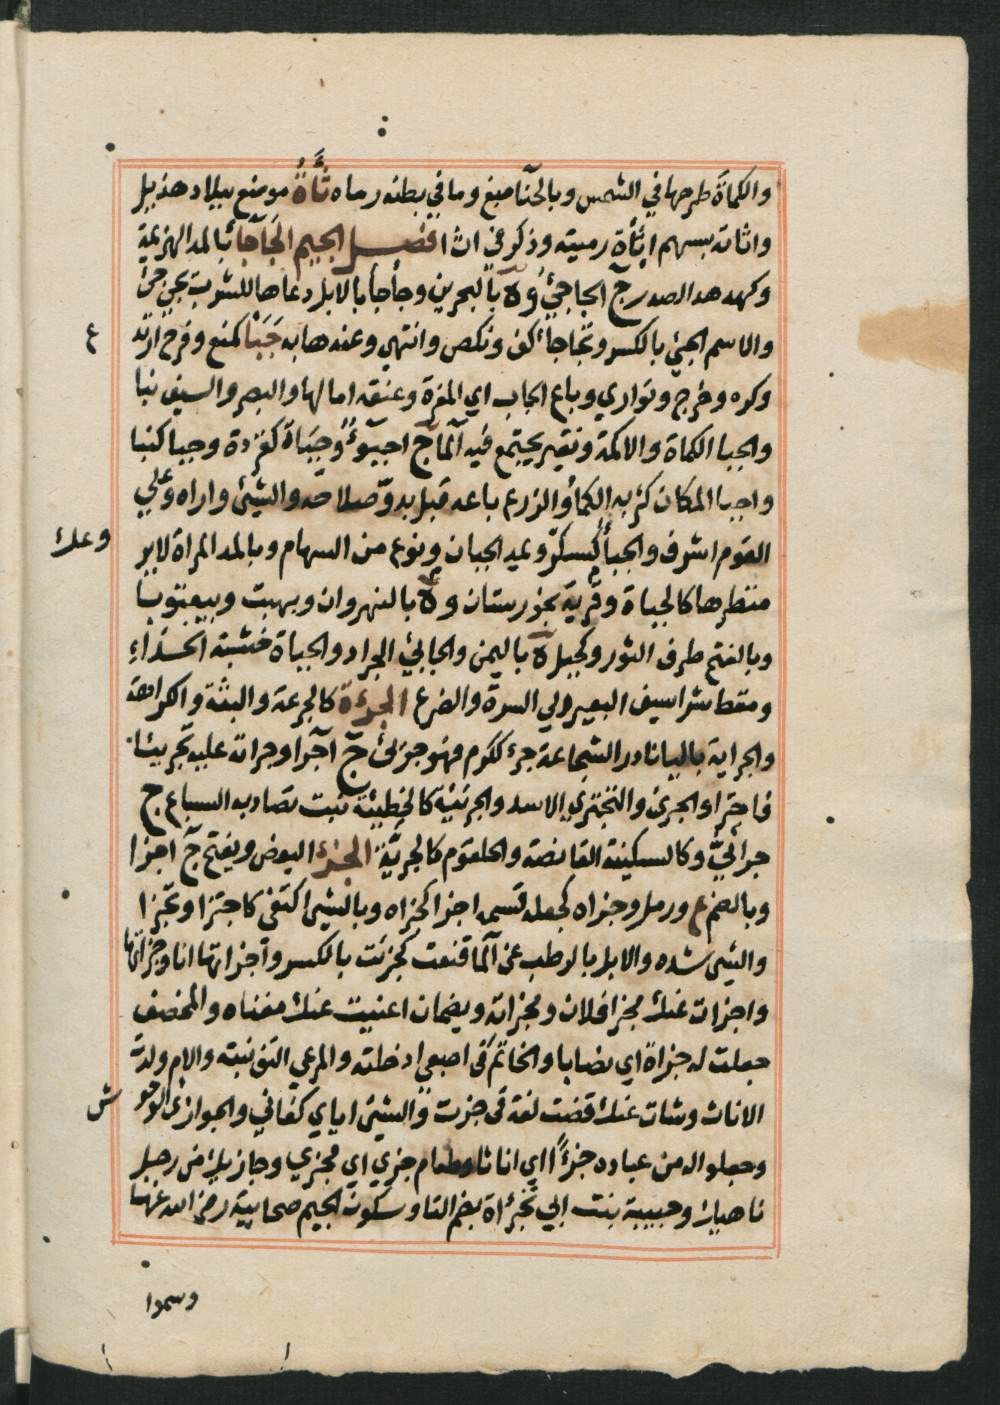 والكمأة طرحها في الشمس وبالحنا صبغ وما في بطنه رماه ثَأَةُ موضع ببلاد هذيل
واثاته بسهم اثأة رميته وذكر في اث ا فصل الجيم الجَآجَأ بالمد الهزيمة
وكهدهد الصدر ج الجاجئ وة بالبحرين وجأجأ بالابل دعاها للشرب بجئ جئ
والاسم الجئ بالكسر وتجاجأ كف ونكص وانتهى وعنه هابه جَبَأ كمنع وفرح ارتد
ع
وكره وخرج وتوارى وباع الجاب اي المغرة وعنقه امالها والبصر والسيف نبا
والجبا الكماة والاكمة ونقير يجتمع فيه الما ج اجبؤ وجِبَاة كقردة وجبا كنبا
واجبا المكان كثر به الكمأ والزرع باعه قبل بدو صلاحه والشئ واراه وعلي
القوم اشرف والجبأ كسكر ويمد الجبان ونوع من السهام وبالمد المراة لا ير
وعلك
منظرها كالجباة وقرية بخوزستان وة بالنهروان وبهيت وببعقوبا
وبالفتح طرف الثور وكجبل ة باليمن والجابئ الجراد والجباة خشبة الحذاء
ومقط شراسيف البعير الي السرة والضرع الجرءة كالجرعة والثبة والكراهة
والجراية باليا نادر الشجاعة جرء ككرم فهو جرئ ج اجرا وجراته عليه تجريئا
فاجترا والجرئ والمجترئ الاسد والجريئة كالخطيئة بيت تصاد به السباع ج
جرائئ وكالسكينة القانصة والحلقوم كالجريّة الجزء البعض ويفتح ج اجزا
وبالضم ع ورمل وجزاه كجعله قسمه اجزا كجزاه وبالشئ اكتفى كاجتزا وتجزا
والشئ شده والابل بالرطب عن الما قنعت كجزئت بالكسر واجزاتها انا وجزاتها
واجزات عنك مجزا فلان ومجزاته ويضمان اغنيت عنك مغناه والمخصف
جعلت له جزاة اي نصابا والخاتم في اصبعي ادخلته والمرعي التف نبته والام ولدت
الاناث وشاة عنك قضت لغة في جزت والشئ اياي كفاني والجوازئ الوحو
ش
وجعلوا له من عباده جزءًا اي اناثا وطعام جزي اي مجزي وجازيك من رجل
ناهيك وحبيبة بنت ابي تجرأة بضم التا وسكون الجيم صحابية رضي الله عنها
وسموا